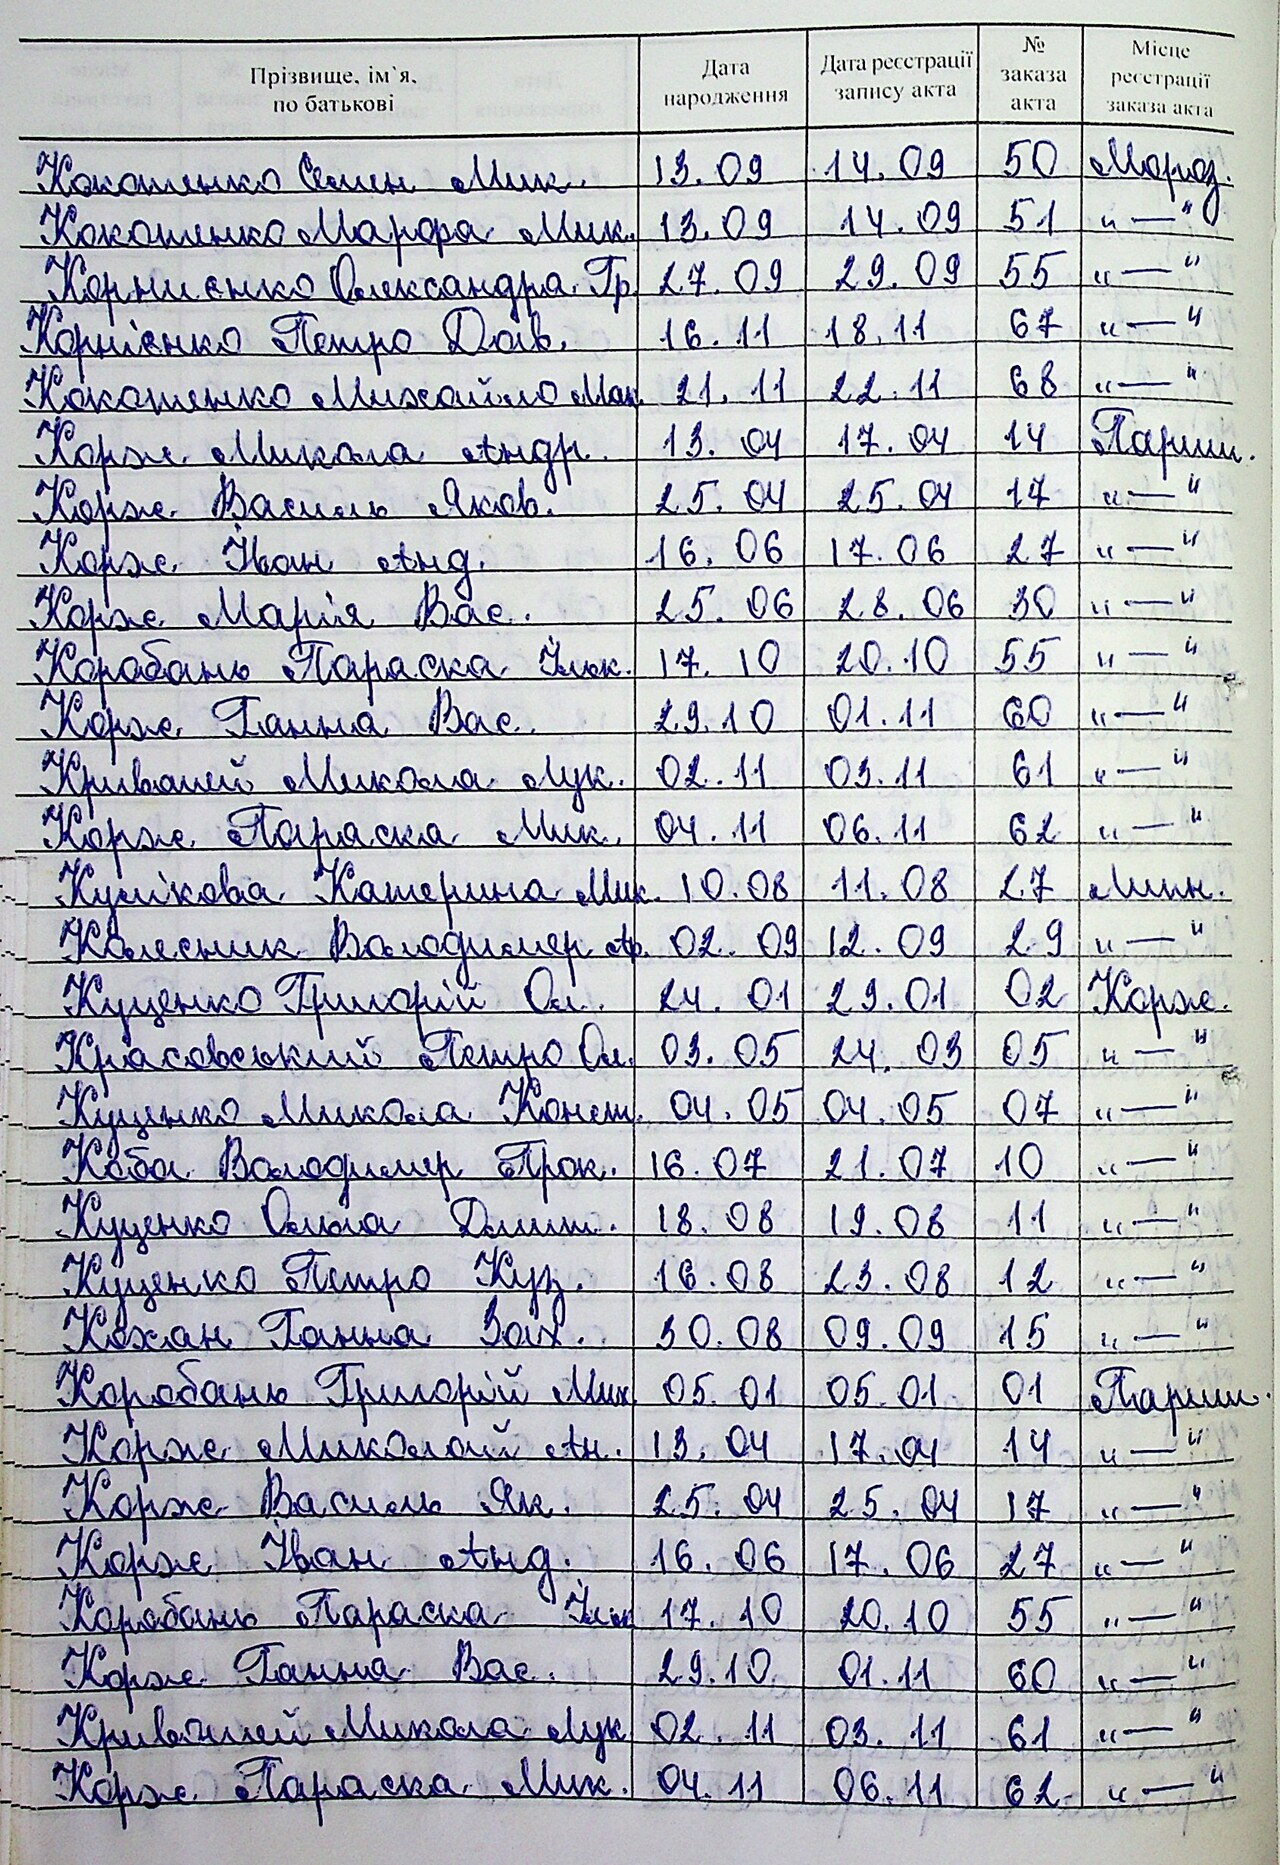 Прізвище, ім`я, по батькові Дата народження Дата реєстрації запису акта № заказа акта Місце реєстрації заказа акта
Кокотенко Семен Мик. 13.09 14.09 50 Мороз.
Кокотенко Марфа Мик. 13.09 14.09 51 "—"
Корниенко Олександра Гр. 27.09 29.09 55 "—"
Корнієнко Петро Дав. 16.11 18.11 67 "—"
Кокотенко Михайло Мак. 21.11 22.11 68 "—"
Корж Микола Андр. 13.04 17.04 14 Париш.
Корж Василь Яков. 25.04 25.04 17 "—"
Корж Іван Анд. 16.06 17.06 27 "—"
Корж Марія Вас. 25.06 28.06 30 "—"
Коробань Параска Ілік. 17.10 20.10 55 "—"
Корж Ганна Вас. 29.10 01.11 60 "—"
Кривашей Микола Лук. 02.11 03.11 61 "—"
Корж Параска Мик. 04.11 06.11 62 "—"
Кулікова Катерина Мик. 10.08 11.08 27 Мин.
Колесник Володимир Ар. 02.09 12.09 29 "—"
Куценко Григорій Ол. 24.01 29.01 02 Корж.
Красовський Петро Ол. 03.05 24.03 05 "—"
Куценко Микола Конст. 04.05 04.05 07 "—"
Коба Володимир Прок. 16.07 21.07 10 "—"
Куценко Ольга Дмит. 18.08 19.08 11 "—"
Куценко Петро Куз. 16.08 23.08 12 "—"
Кохан Ганна Зах. 30.08 09.09 15 "—"
Коробань Григорій Мик. 05.01 05.01 01 Париш.
Корж Миколай Ан. 13.04 17.04 14 "—"
Корж Василь Як. 25.04 25.04 17 "—"
Корж Іван Анд. 16.06 17.06 27 "—"
Коробань Параска Ілік 17.10 20.10 55 "—"
Корж Ганна Вас. 29.10 01.11 60 "—"
Кривашей Микола Лук 02.11 03.11 61 "—"
Корж Параска Мик. 04.11 06.11 62 "—"